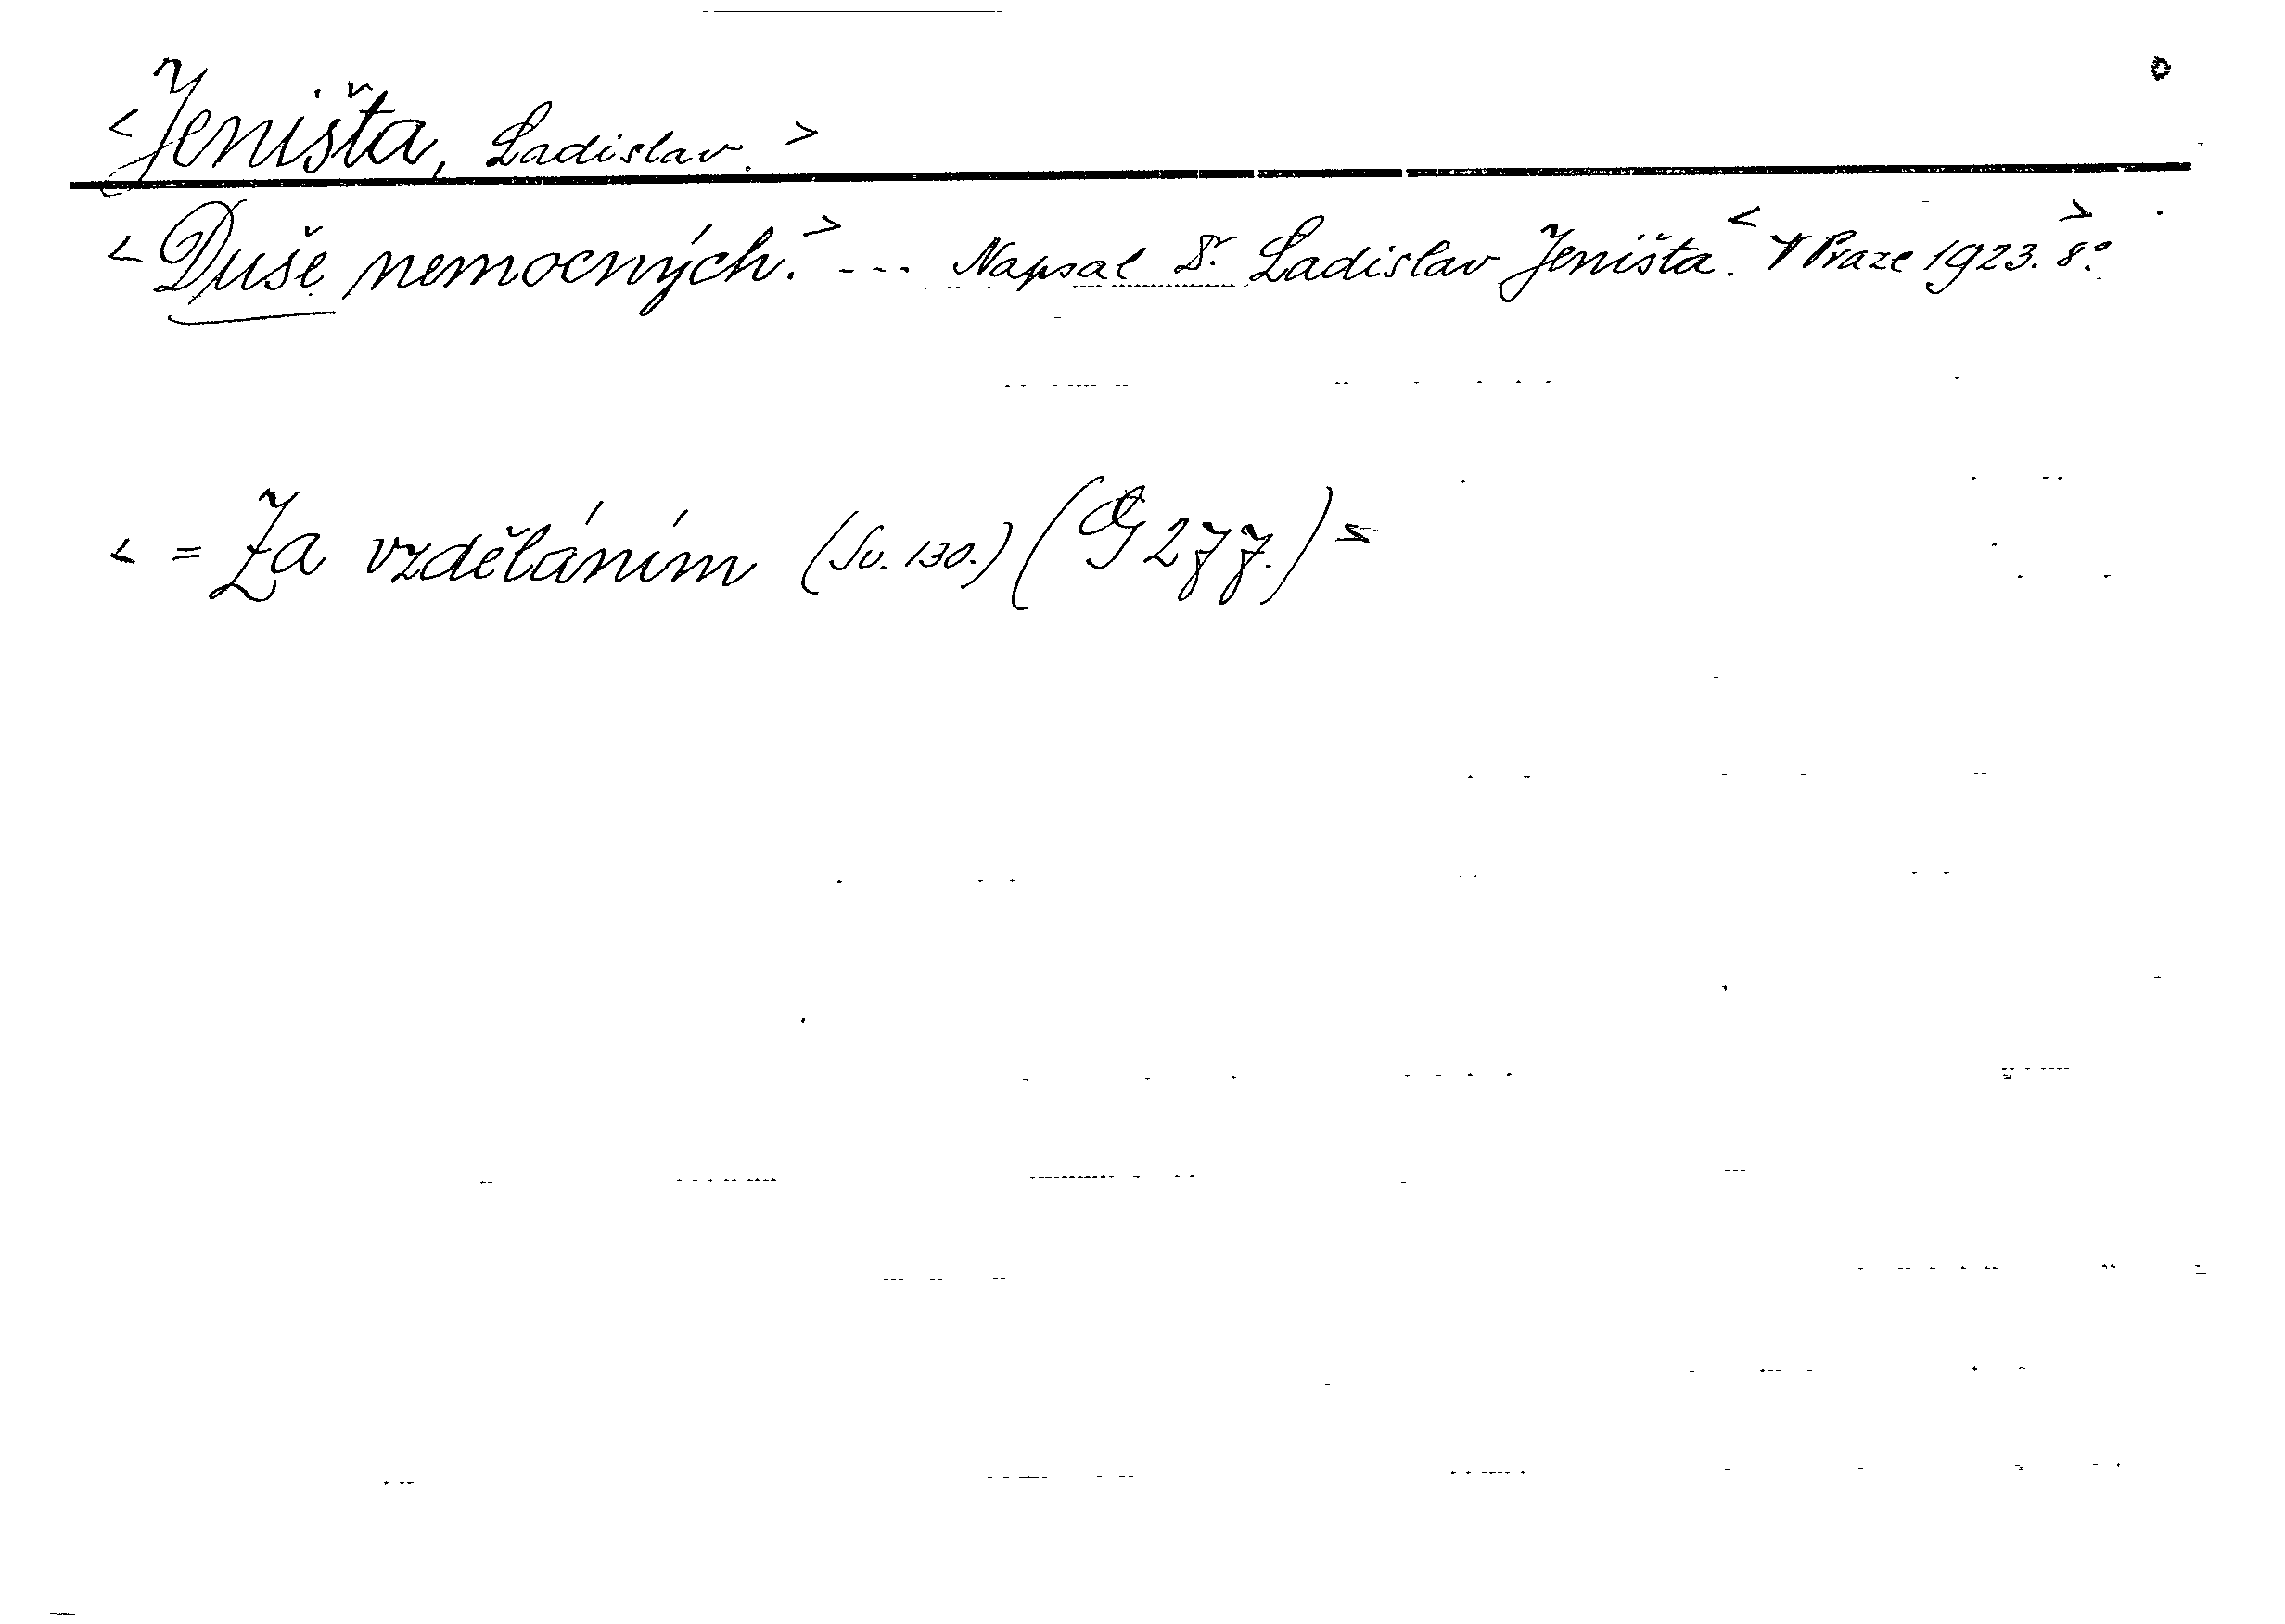 <Jeništa, Ladislav.>
<Duše nemocných.> --- Napsal Dr. Ladislav Jeništa. <V Praze 1923. 8°.>
< = Za vzděláním (Sv. 130.) (G 277.) =